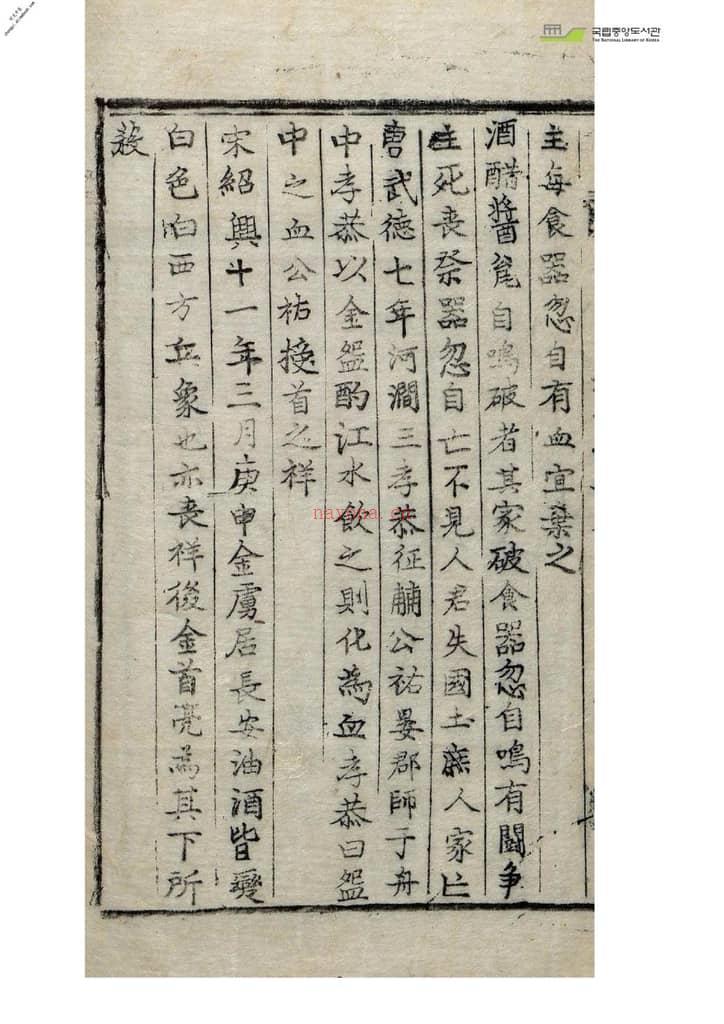 国립중앙도서관
THE NATIONAL LIBRARY OF KOREA
主每食器忽自有血宜棄之
酒醋醬瓮自鳴破者其家破食器忽自鳴有鬪争
主死喪祭器忽自亡不見人君失國土庶人家亡
唐武德七年河澗三孝恭征輔公祐晏郡師于舟
中孝恭以金盌酌江水飲之則化為血孝恭曰盌
中之血公祐授首之祥
宋紹興十一年三月庚申金虜居長安油酒皆變
白色白西方兵象也亦喪祥後金首亮為其下所
殺